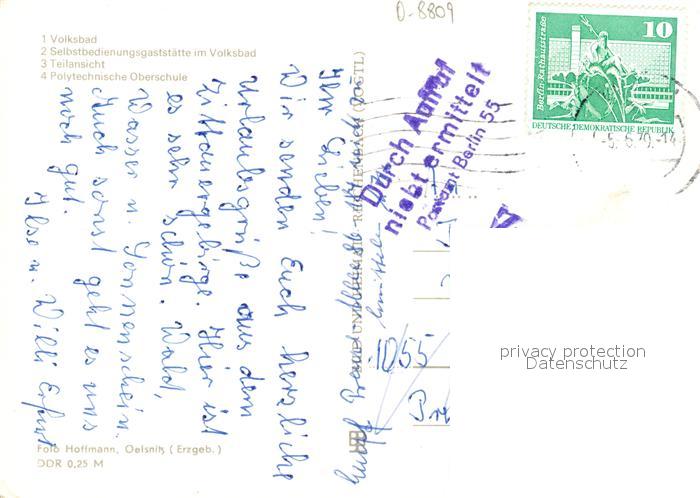 D-8809
1 Volksbad
2 Selbstbedienungsgaststätte im Volksbad
3 Teilansicht
4 Polytechnische Oberschule
Ihr Lieben!
Wir senden Euch herzliche
Urlaubsgrüße aus dem
Zittauergebirge. Hier ist
es sehr schön. Wald,
Wasser u. Sonnenschein.
Auch sonst geht es uns
noch gut.
Ilse u. Willi Erfurt
Foto Hoffmann, Oelsnitz (Erzgeb.)
DDR 0,25 M
REICHENBACH (VOGTL)
Durch Aufruf
nicht ermittelt
Postamt Berlin 55
10
Berlin-Rathausstraße
DEUTSCHE DEMOKRATISCHE REPUBLIK
1055
privacy protection
Datenschutz